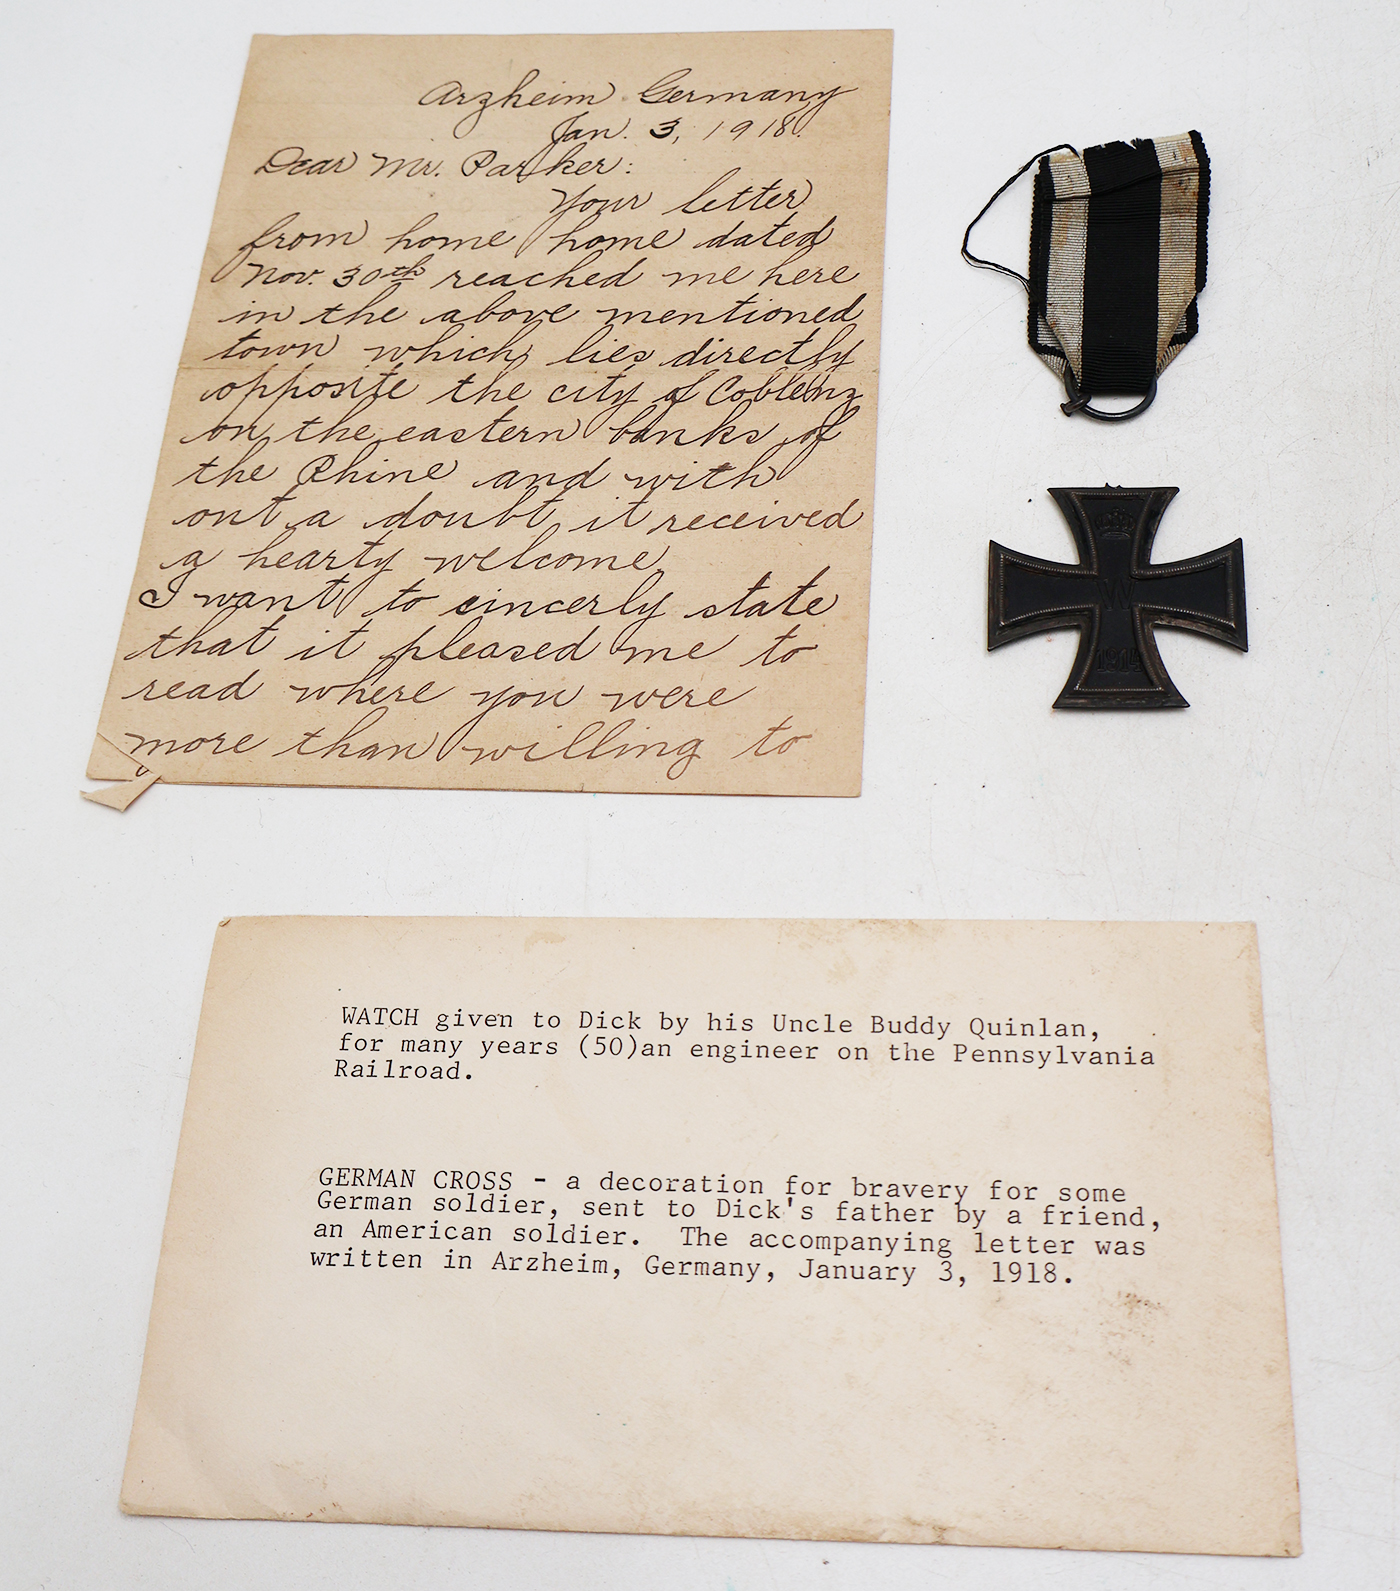 Arzheim Germany
Jan. 3, 1918.
Dear Mr. Parker:
Your letter
from home home dated
Nov. 30th reached me here
in the above mentioned
town which lies directly
opposite the city of Coblenz
on the eastern banks of
the Rhine and with
out a doubt it received
a hearty welcome.
I want to sincerly state
that it pleased me to
read where you were
more than willing to
W
1914
WATCH given to Dick by his Uncle Buddy Quinlan,
for many years (50)an engineer on the Pennsylvania
Railroad.
GERMAN CROSS - a decoration for bravery for some
German soldier, sent to Dick's father by a friend,
an American soldier.  The accompanying letter was
written in Arzheim, Germany, January 3, 1918.